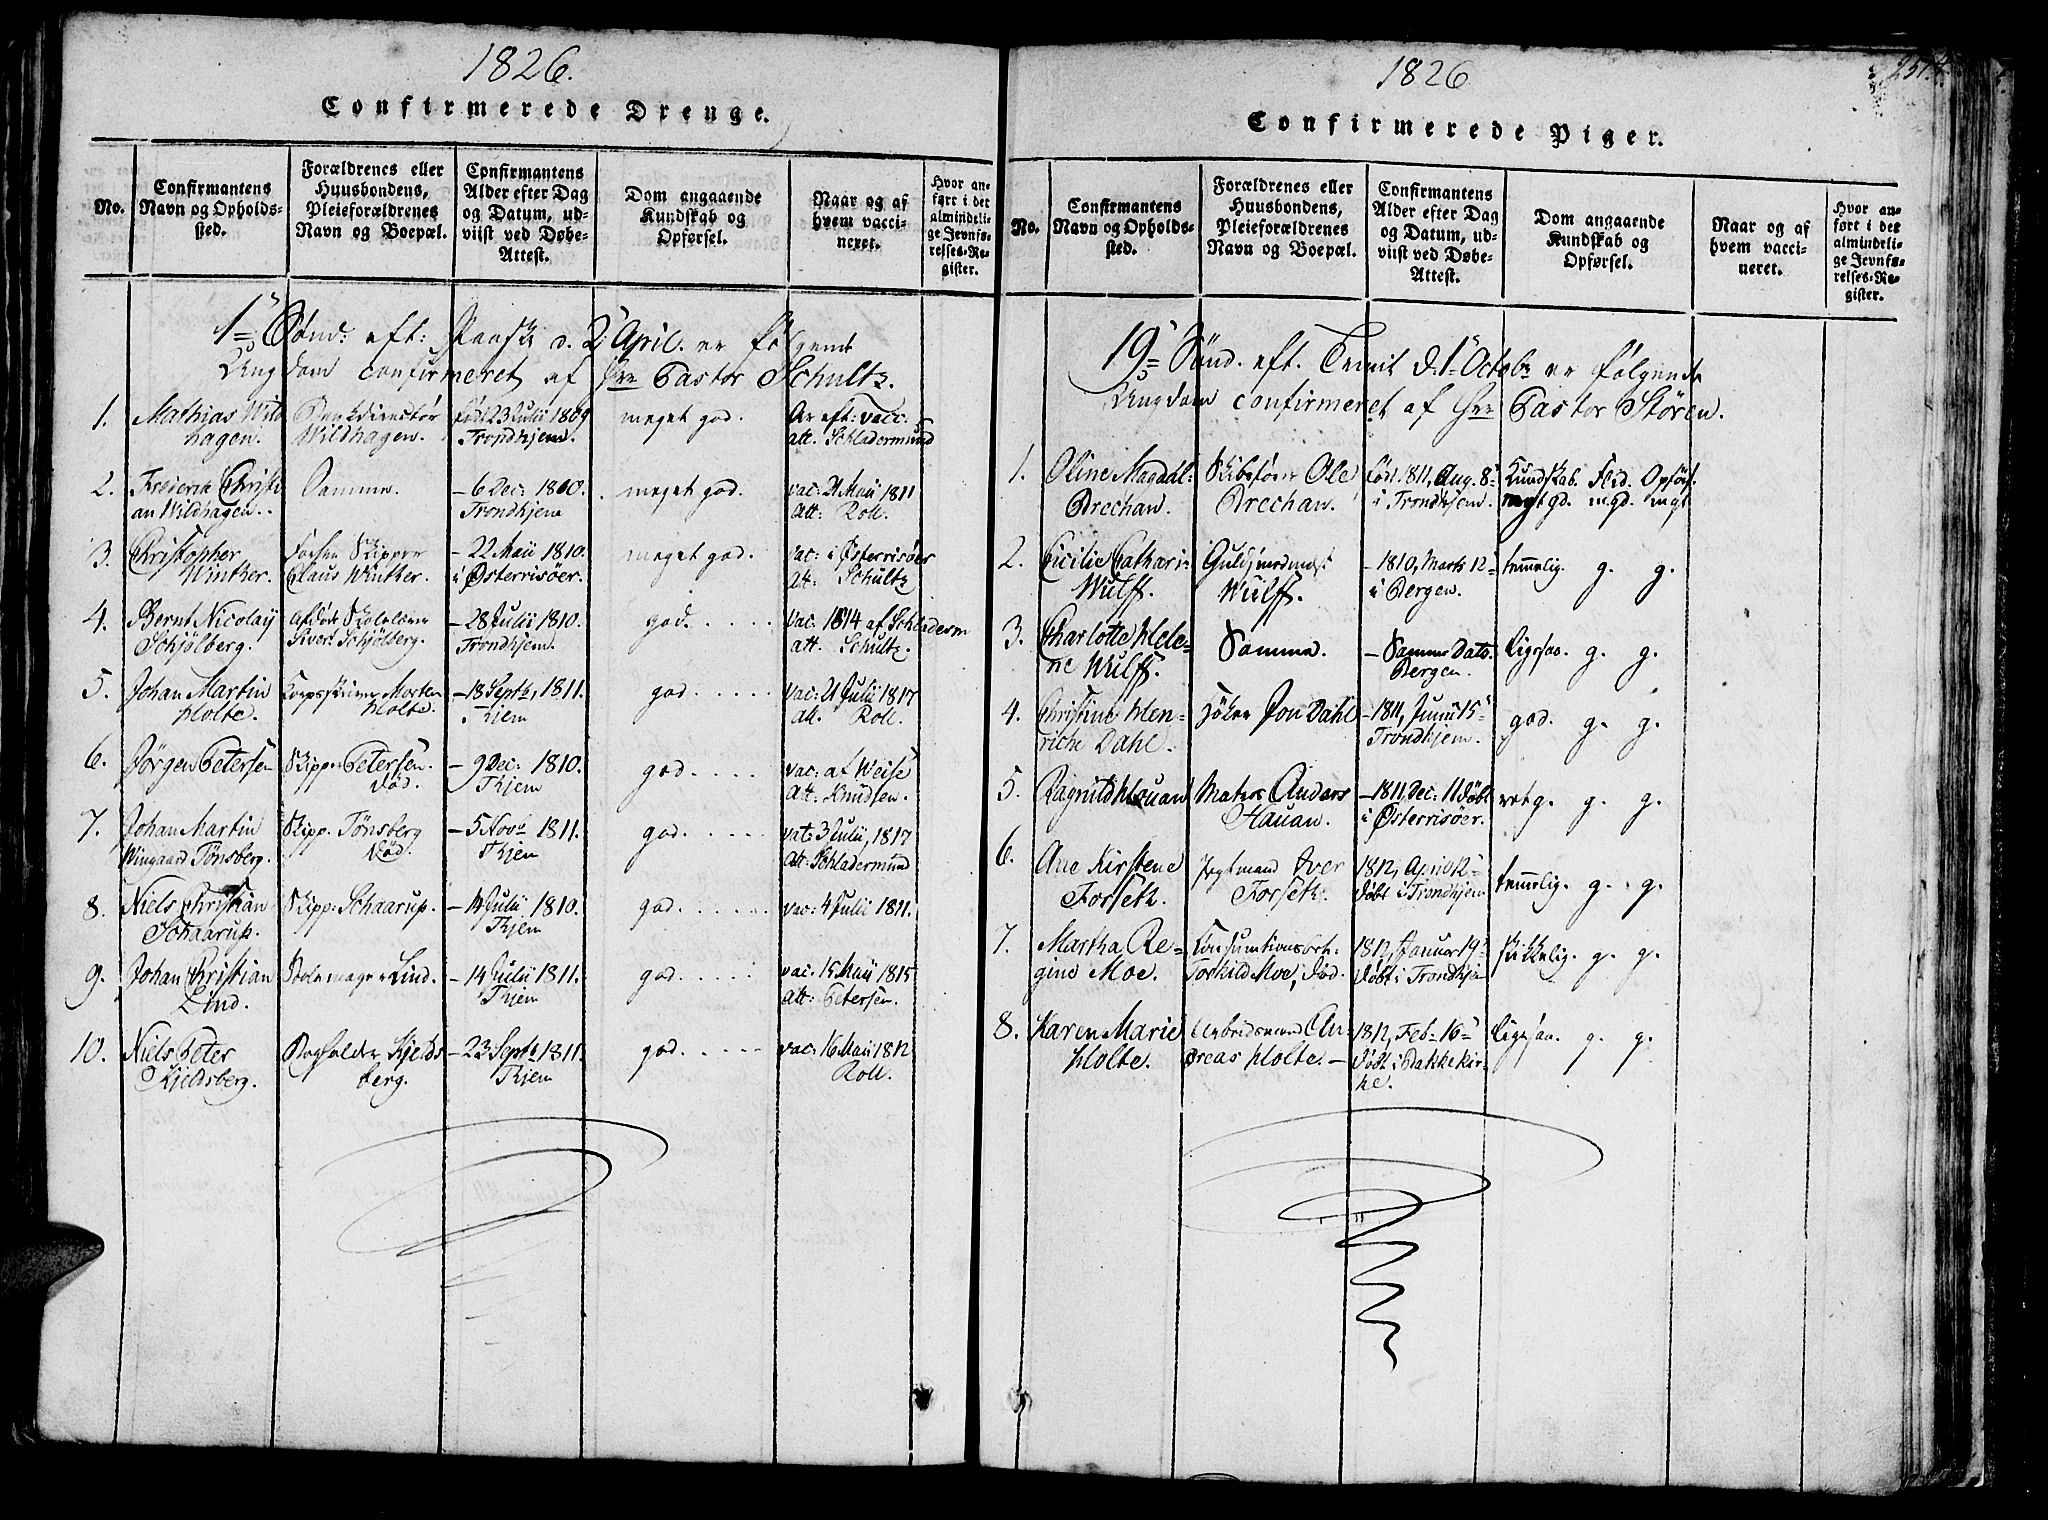 1826.
Confirmerede Drenge.
No.
Confirmantens
Navn og Opholds-
sted.
Forældrenes eller
Huusbondens,
Pleieforældrenes
Navn og Boepæl.
Confirmantens
Alder efter Dag
og Datum, ud-
viist ved Døbe-
Attest.
Dom angaaende
Kundskab og
Opførsel.
Naar og af
hvem vacci-
neret.
Hvor an-
ført i det
almindeli-
ge Jevnfø-
relses-Re-
gister.
1ste Sønd: eft: Paask d. 2 April er følgende
Ungdom confirmeret af Hrr Pastor Schultz.
1.
Mathias Wild
hagen.
Wildhagen.
fød 23 Julii 1809
Trondhjem.
meget god.
Ar eft: vacc:
att. Schladermund
2.
Frederik Christi
an Wildhagen.
Samme.
- 6 Dec: 1810.
Trondhjem
meget god.
vac: 21 Maii 1811
Att: Roll.
3.
Christopher
Winther.
Skipper
Claus Winther.
- 22 Maii 1810.
i Østerrisøer.
meget god.
vac: i Østerrisøer
att: Schultz
4.
Bernt Nicolay
Schjølberg.
Afdøde Skolelærer
Sivert Schjølberg.
- 28 Julii 1810.
Trondhjem.
god.
vac: 1814 af Schladerm
att. Schultz.
5.
Johan Martin
Holte.
Morten
Holte.
- 18 Septb, 1811.
Thjem
god
vac: 21 Julii 1817
att. Roll.
6.
Jørgen Petersen
Skipp: Petersen.
død.
- 9 Dec: 1810.
Thjem
god
vac: af Weise
Att: Knudsen.
7.
Johan Martin
Wingaard Tønsberg.
Skipp: Tønsberg
død.
- 5 Novb 1811.
Thjem
god.
vac: 3 Julii, 1817
Att: Schladermund
8.
Niels Christian
Schaarup.
Skipp: Schaarup.
- 14 Julii 1810.
Thjem
god.
vac: 4 Julii 1811.
9.
Johan Christian
Lind.
Stolemager Lind.
- 14 Julii 1811.
Thjem
god.
vac: 15 Maii 1815
Att: Petersen.
10.
Niels Peter
Kjeldsberg.
Bogholder Kjelds
berg.
- 23 Septb 1811.
Thjem
god.
vac: 16 Maii 1812
Roll.
1826
Confirmerede Piger.
No.
Confirmantens
Navn og Opholds-
sted.
Forældrenes eller
Huusbondens,
Pleieforældrenes
Navn og Boepæl.
Confirmantens
Alder efter Dag
og Datum, ud-
viist ved Døbe-
Attest.
Dom angaaende
Kundskab og
Opførsel.
Naar og af
hvem vacci-
neret.
Hvor an-
ført i det
almindeli-
ge Jevnfø-
relses-Re-
gister.
19de Sønd. eft. Trinit d. 1ste Octobr er følgende
Ungdom confirmeret af Hrr Pastor Stören.
1.
Oline Magdal-
Brechan.
Ole
Brechan.
fød 1811, Aug. 8de
i Trondhjem.
Kundskab. Flid. Opførs.
mgt gd. m.gd. mgt
2.
Cicilie Cathari-
Wulff.
Wulff.
- 1810, Marts 12te
i Bergen.
temmelig. g. g.
3.
Charlotte Hele-
ne Wulff.
Samme.
- Samme Dato
Bergen.
Ligesaa. g. g.
4.
Christine Hen-
riche Dahl.
Høker Jon Dahl
- 1811, Junii 15de
Trondhjem.
god. g. g.
5.
Ragnild Hauan
Anders
Hauan.
- 1811, Dec: 11 døbt
i Østerrisøer.
ret g. g. g.
6.
Ane Kirstene
Forseth.
Jegtmand Iver
Forseth.
1812, April 12te
døbt i Trondhjem
temmelig. g. g.
7.
Martha Re-
gine Moe.
Torkild Moe, død.
1812, Januar 19de
døbt i Trondhjem
skikkelig. g. g.
8.
Karen Marie
Holte.
Arbeidsmand An-
dreas Holte. -
1812, Feb- 16de
døbt i Bakke kir-
ke.
Ligesaa. g. g.